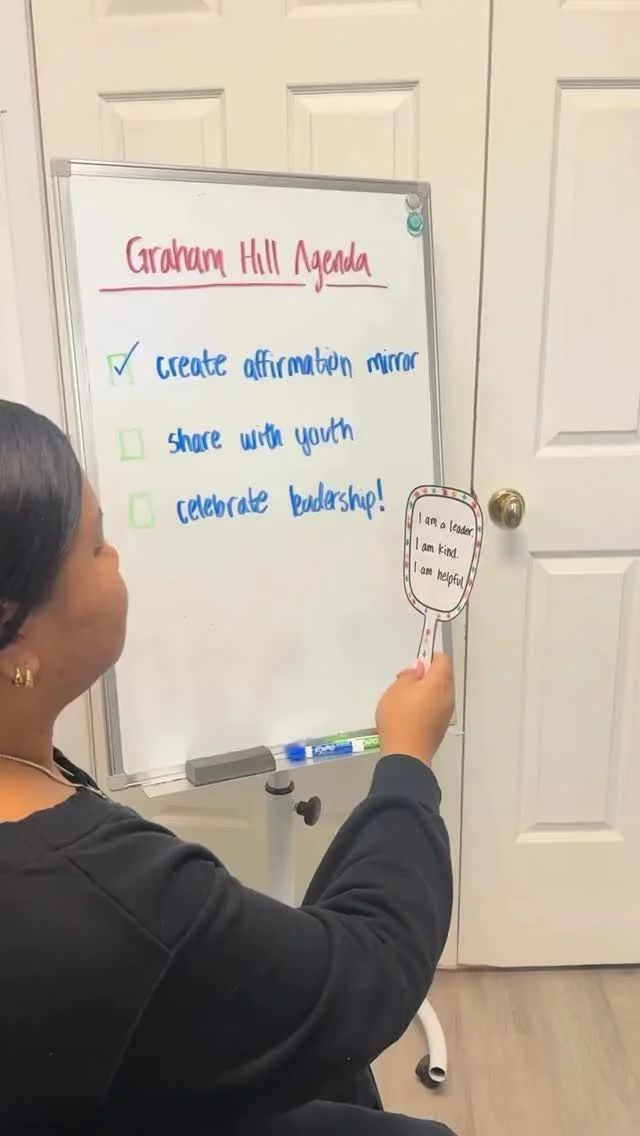 Graham Hill Agenda
create affirmation mirror
share with youth
celebrate leadership!
I am a leader.
I am kind.
I am helpful
EXPO